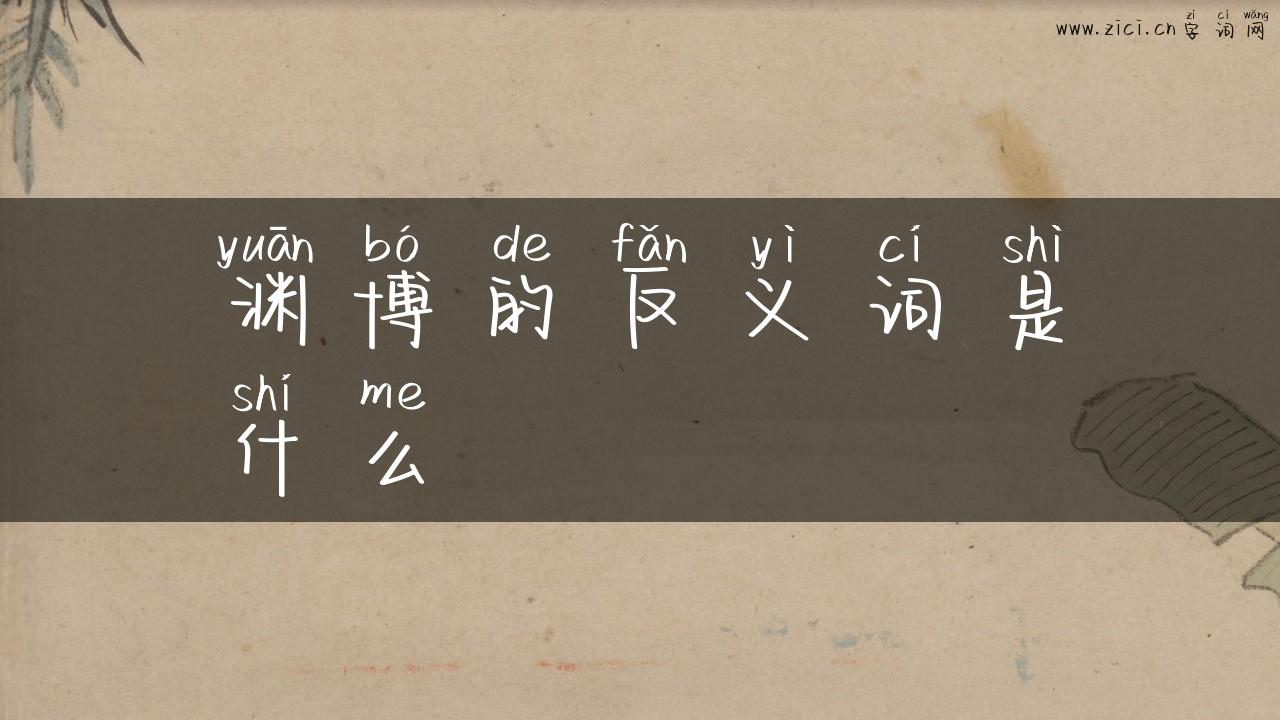 zì cí wǎng
www.zici.cn 字词网
yuān bó de fǎn yì cí shì
渊博的反义词是
shí me
什么